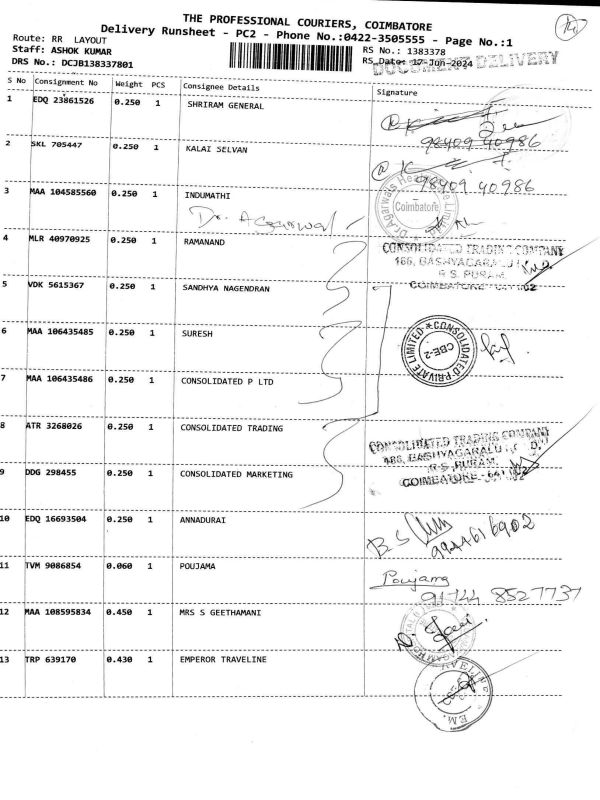 THE PROFESSIONAL COURIERS, COIMBATORE
Delivery Runsheet - PC2 - Phone No.:0422-3505555 - Page No.:1
Route: RR LAYOUT
Staff: ASHOK KUMAR
RS No.: 1383378
DRS No.: DCJB138337801
RS Date: 17-Jun-2024
DOCUMENT DELIVERY
S No Consignment No Weight PCS Consignee Details Signature
1 EDQ 23861526 0.250 1 SHRIRAM GENERAL
98409 40986
2 SKL 705447 0.250 1 KALAI SELVAN
98409 40986
3 MAA 104585560 0.250 1 INDUMATHI
Dr. Agarwal
Dr Agarwals Coimbatore
4 MLR 40970925 0.250 1 RAMANAND
CONSOLIDATED TRADING COMPANY
R S PURAM
5 VDK 5615367 0.250 1 SANDHYA NAGENDRAN
COIMBATORE
6 MAA 106435485 0.250 1 SURESH
CONSOLIDATED PRIVATE LIMITED CBE-2
7 MAA 106435486 0.250 1 CONSOLIDATED P LTD
8 ATR 3268026 0.250 1 CONSOLIDATED TRADING
CONSOLIDATED TRADING COMPANY
R S PURAM
9 DDG 298455 0.250 1 CONSOLIDATED MARKETING
COIMBATORE
10 EDQ 16693504 0.250 1 ANNADURAI
9944616902
11 TVM 9086854 0.060 1 POUJAMA
Poujama
91744 8527737
12 MAA 108595834 0.450 1 MRS S GEETHAMANI
13 TRP 639170 0.430 1 EMPEROR TRAVELINE